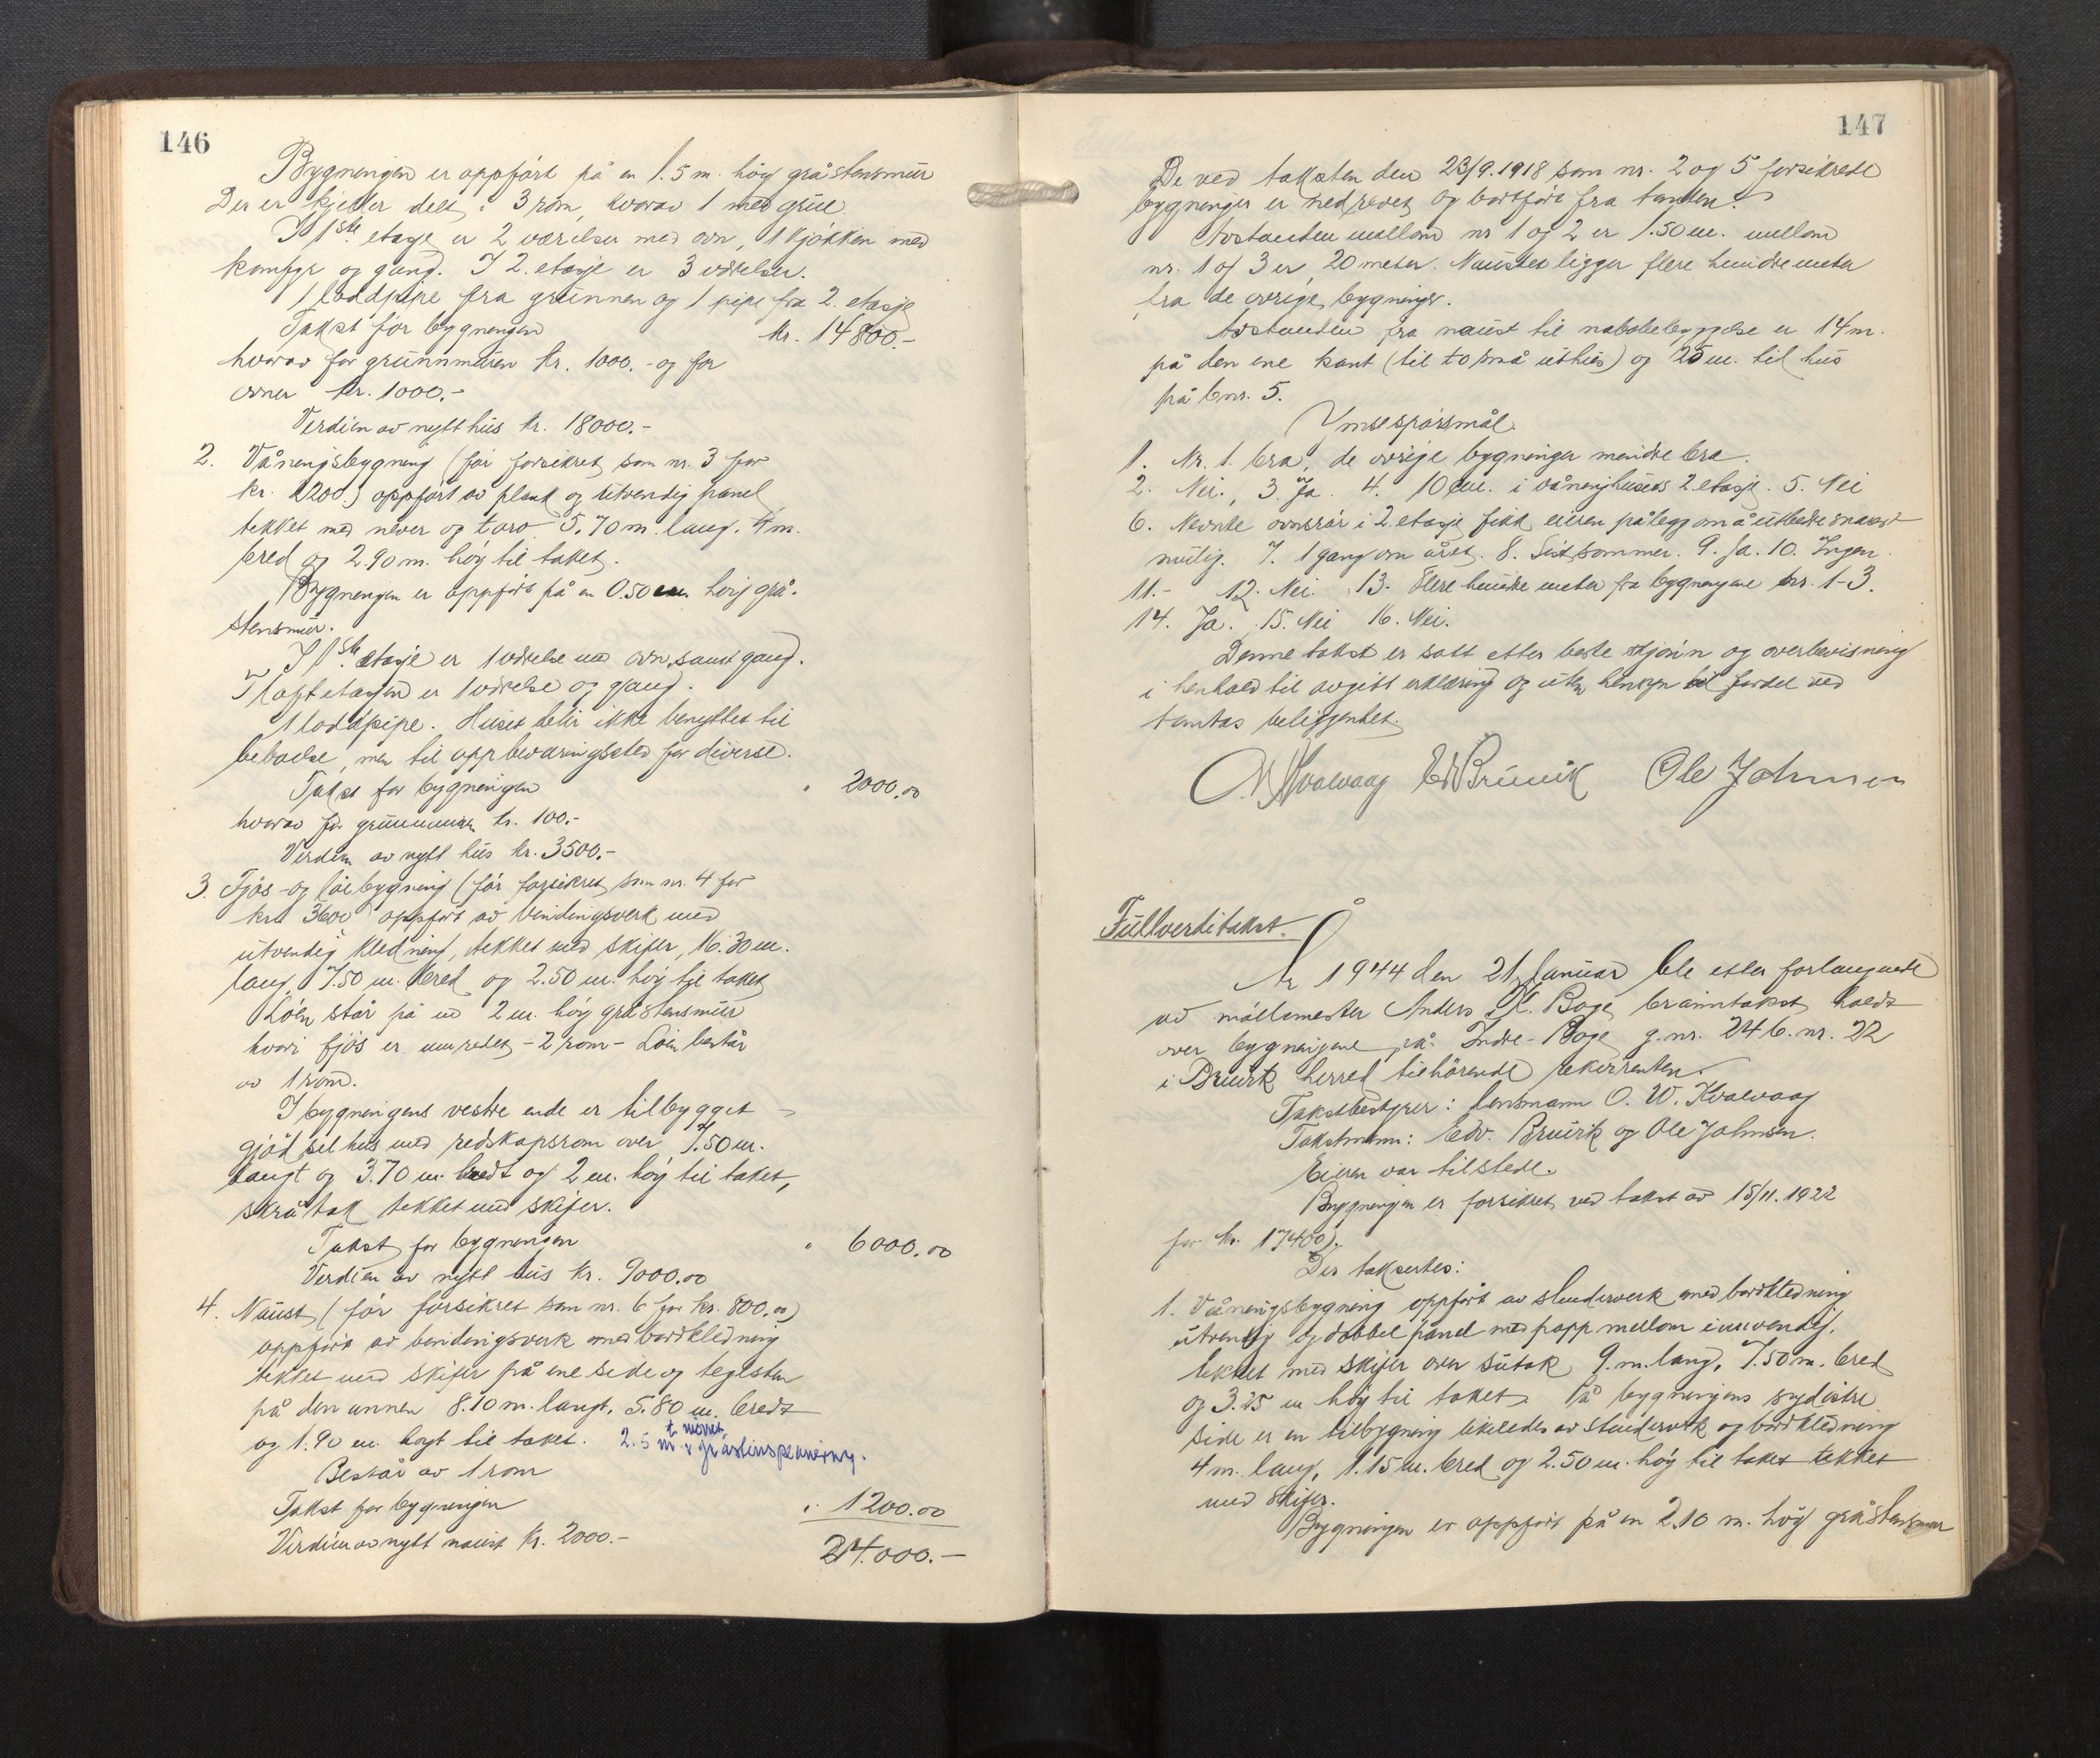 146
Bygningen er oppført på en 1.5 m. høy gråstensmur
Der er kjeller delt i 3 rom, hvorav 1 med grue.
I 1ste etasje er 2 værelser med ovn, 1 kjøkken med
komfyr og gang. I 2. etasje er 3 værelser.
1 loddpipe fra grunnen og 1 pipe fra 2. etasje
Takst for bygningen kr. 14800.-
hvorav for grunnmuren kr. 1000.- og for
ovner kr. 1000.-
Verdien av nytt hus kr. 18000.-
2. Våningsbygning (før forsikret som nr. 3 for
kr. 2200.) oppført av plank og utvendig panel
tekket med never og torv 5.70 m. lang, 4 m.
bred og 2.90 m. høy til taket.
Bygningen er oppført på en 0.50 m. høy grå-
stensmur.
I 1ste etasje er 1 værelse med ovn, samt gang.
I loftetasjen er 1 værelse og gang.
1 loddpipe. Huset blir ikke benyttet til
beboelse, men til oppbevaringssted for diverse.
Takst for bygningen " 2000.00
hvorav for grunnmuren kr. 100.-
Verdien av nytt hus kr. 3500.-
3. Fjøs- og løebygning (før forsikret som nr. 4 for
kr. 3600) oppført av bindingsverk med
utvendig kledning, tekket med skifer, 16.30 m.
lang, 7.50 m. bred og 2.50 m. høy til taket
Løen står på en 2 m. høy gråstensmur
hvori fjøs er innredet - 2 rom - Løen består
av 1 rom.
I bygningens vestre ende er tilbygget
gjødselhus med redskapsrom over 7.50 m.
langt og 3.70 m. bredt og 2 m. høy til taket,
skråtak tekket med skifer.
Takst for bygningen " 6000.00
Verdien av nytt hus kr. 9000.00
4. Naust (før forsikret som nr. 6 for kr. 800.00)
oppført av bindingsverk med bordkledning
tekket med skifer på ene side og teglsten
på den annen 8.10 m. langt, 5.80 m. bredt
og 1.90 m. høyt til taket. 2.5 m.
Består av 1 rom
Takst for bygningen " 1200.00
Verdien av nytt naust kr. 2000.-
24.000.-
147
De ved taksten den 23/9.1918 som nr. 2 og 5 forsikrede
bygninger er nedrevet og bortført fra tomten.
Avstanden mellom nr 1 og 2 er 1.50 m. mellom
nr. 1 og 3 er 20 meter. Naustet ligger flere hundre meter
fra de øvrige bygninger.
Avstanden fra naust til nabobebyggelse er 14 m.
på den ene kant (til to små uthus) og 25 m. til hus
på bnr. 5.
Ymse spørsmål.
1. Nr. 1. bra, de øvrige bygninger mindre bra.
2. Nei., 3. Ja. 4. 10 cm. i våningshusets 2. etasje. 5. Nei
6. Nevnte ovnsrør i 2. etasje fikk eieren pålegg om å utbedre snarest
mulig. 7. 1 gang om året. 8. Sist sommer. 9. Ja. 10. Ingen
11.- 12. Nei. 13. Flere hundre meter fra bygningene nr. 1-3.
14. Ja. 15. Nei 16. Nei.
Denne takst er satt etter beste skjønn og overbevisning
i henhold til avgitt erklæring og uten hensyn til fordel ved
tomtas beliggenhet.
O.W. Kvalvaag Edv Bruvik Ole Johnsen
Fullverditakst.
År 1944 den 21. Januar ble etter forlangende
av møllemester Anders K. Boge branntakst holdt
over bygningene på Indre-Boge g.nr. 24 b.nr. 22
i Bruvik herred tilhørende rekvirenten.
Takstbestyrer: lensmann O. W. Kvalvaag
Takstmenn: Edv. Bruvik og Ole Johnsen.
Eieren var tilstede.
Bygningen er forsikret ved takst av 15/11. 1922
for kr. 17400).
Der taksertes:
1. Våningsbygning oppført av stenderverk med bordkledning
utvendig og dobbel panel med papp mellom innvendig,
tekket med skifer over sutak, 9 m. lang, 7.50 m. bred
og 3.25 m høy til taket. På bygningens sydøstre
side er en tilbygning likeledes av stenderverk og bordkledning
4 m. lang, 1.15 m. bred og 2.50 m. høy til taket tekket
med skifer.
Bygningen er oppført på en 2.10 m. høy gråstensmur